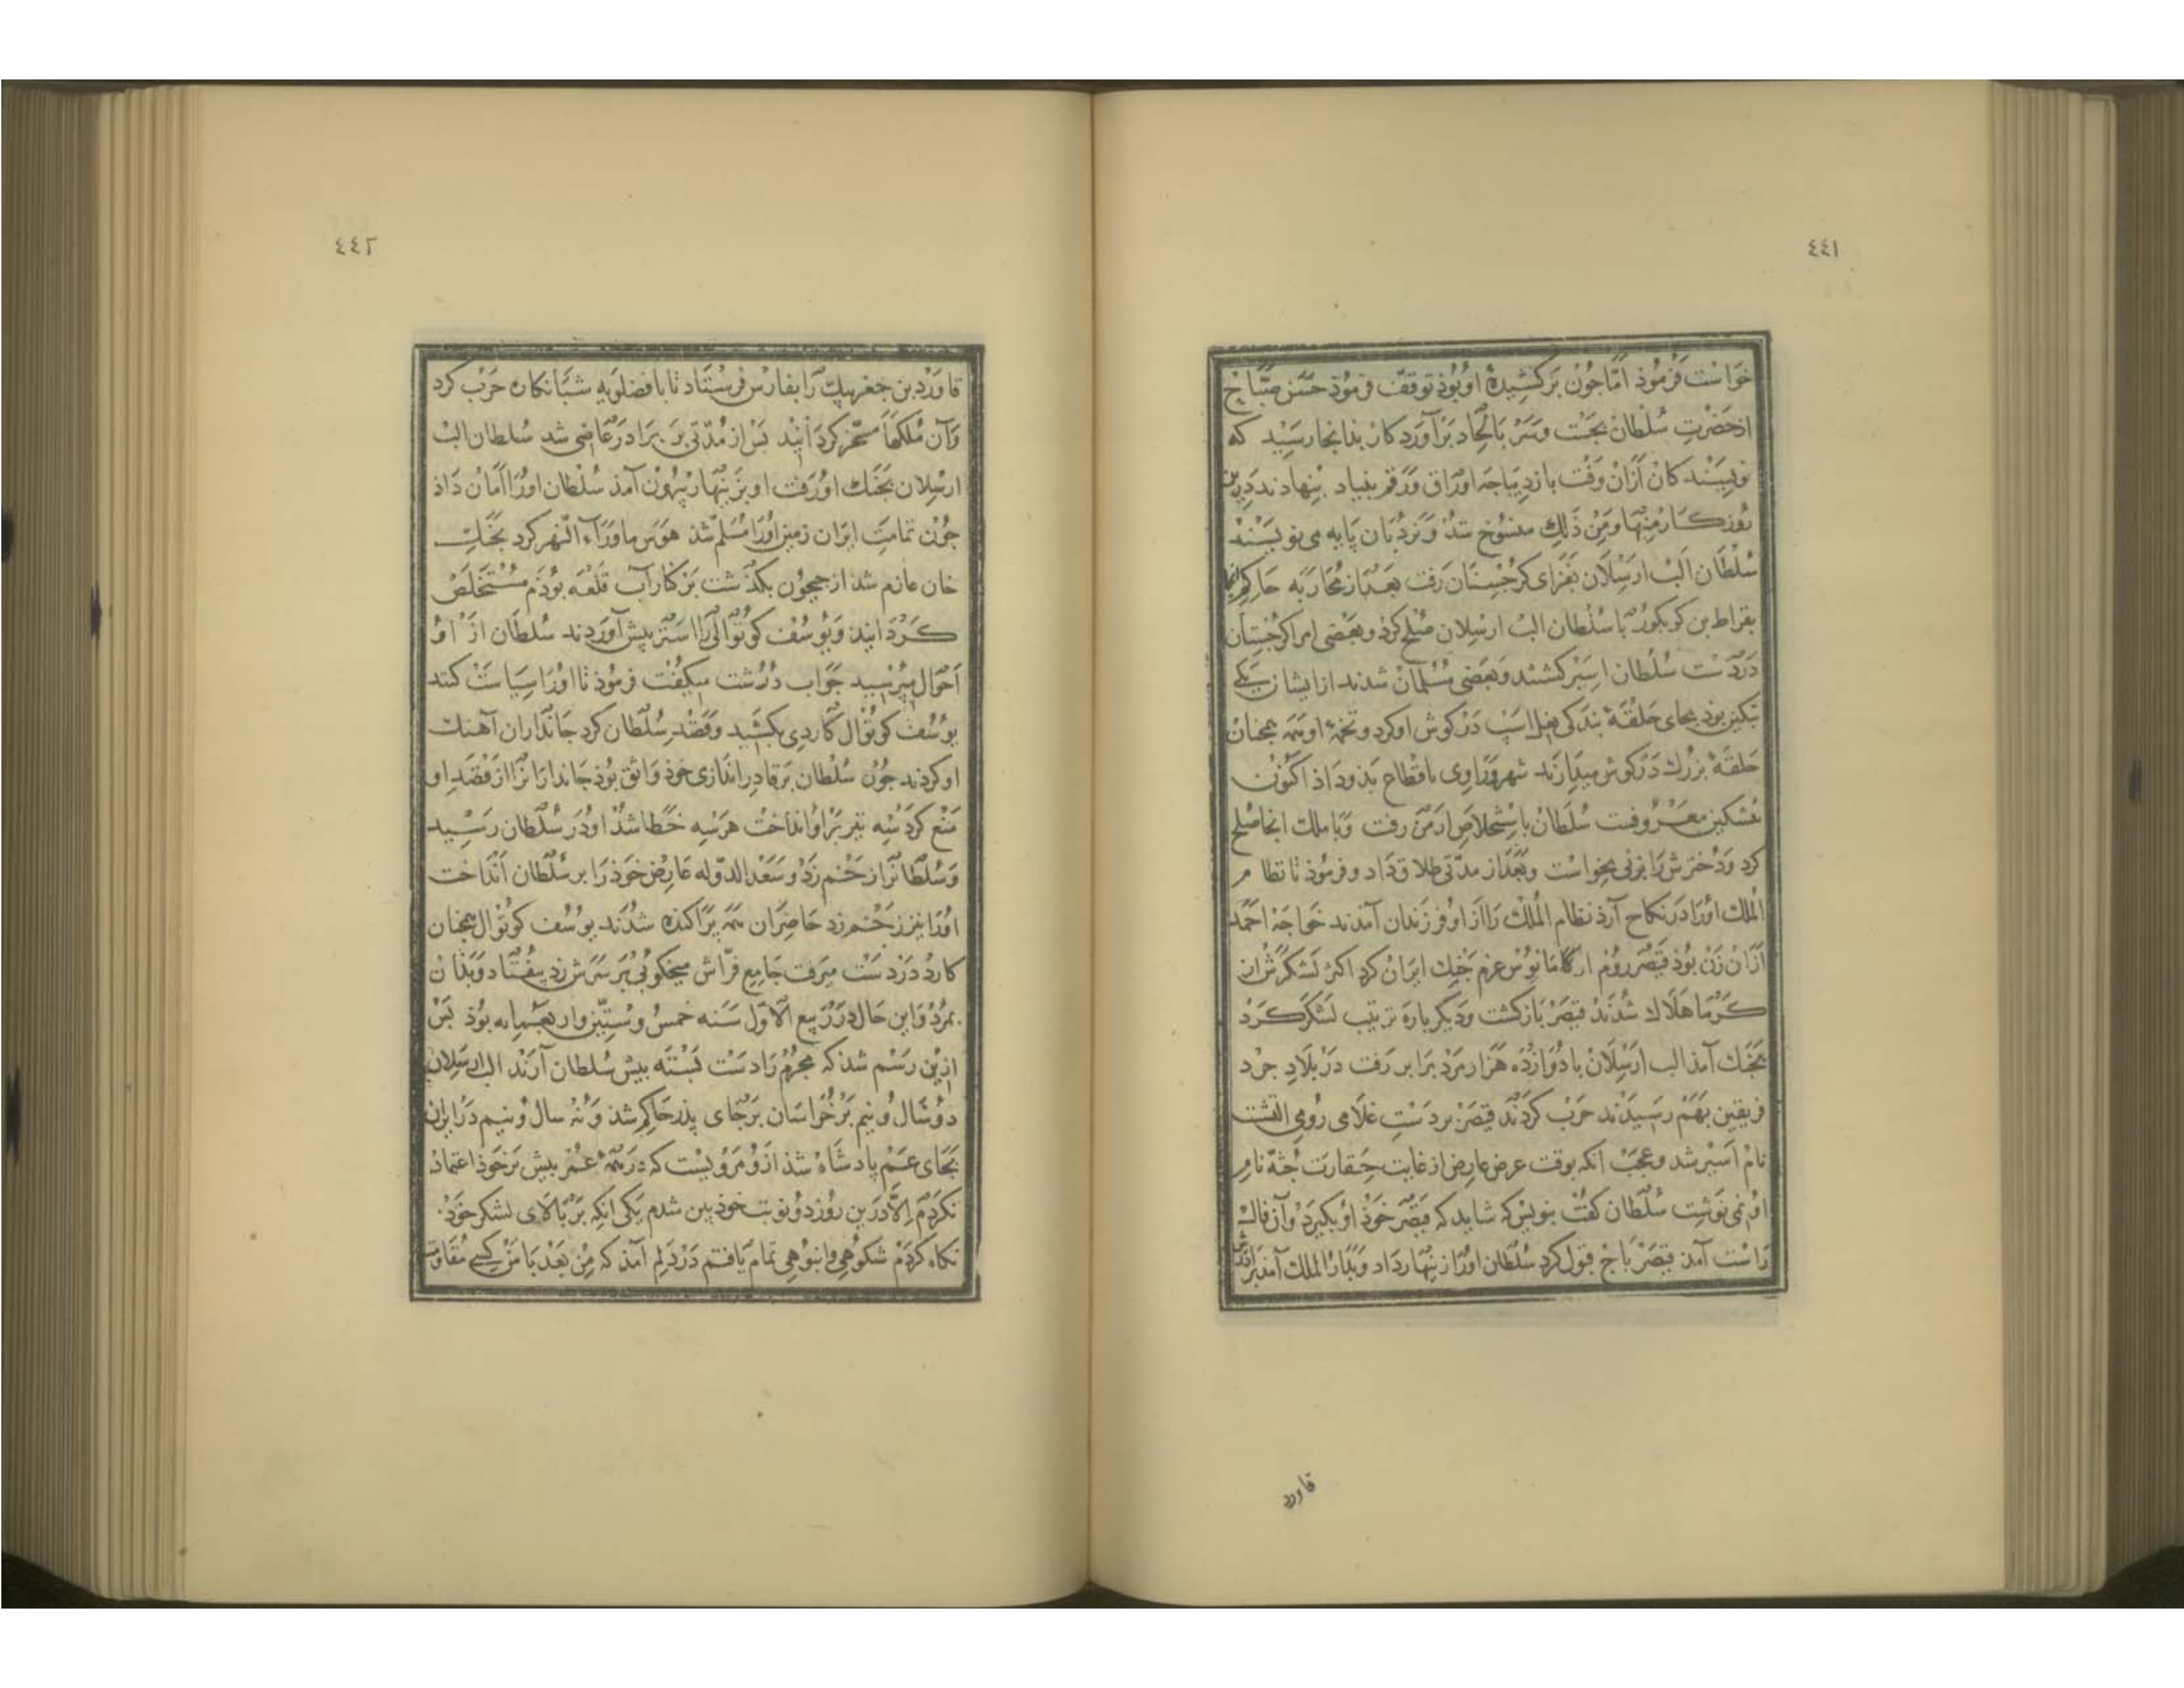 ٤٤١
خواست فرمود اما جون بركشيدهٔ او بوذ توقف فرموذ حسن صباح
از حضرت سلطان بجست و سر بالحاد برآورد كار بدانجا رسيد كه
كان ازان وقت باز ديباجه اوراق ورقم بنياد بنهادند درين
روز كار منها ومن ذلك منسوخ شد و نردبان پايه مى نويسند
سلطان الب ارسلان بغزاى كرجستان رفت بعد از محاربه حاكم انجا
بقراط بن كريكور با سلطان الب ارسلان صلح كرد و بعضى امرا كرجستان
در دست سلطان اسير كشتند و بعضى مسلمان شدند از ايشان يكى
بيكين بوذ بجاى حلقهٔ بندكى نعل اسب در كوش او كرد و تخمهٔ او همه همجنان
حلقهٔ بزرك در كوش ميدارند شهر وراوى باقطاع بذو داذ اكنون
بمشكين معروفست سلطان باستخلاص ارمن رفت و با ملك انجا صلح
كرد و دخترش را بزنى بخواست و بعد از مدتى طلاق داد و فرموذ تا نظام
الملك اورا در نكاح آرد نظام الملك را از او فرزندان آمدند خواجه احمد
ازان زن بوذ قيصر روم ارمانوس عزم جنك ايران كرد اكثر لشكرش از
كرما هلاك شدند قيصر باز كشت و ديكر باره ترتيب لشكر كرد
بجنك آمد الب ارسلان با دوازده هزار مرد برابر رفت در بلاد جرد
فريقين بهم رسيدند حرب كردند قيصر بر دست غلامى رومى
نام اسير شد و عجب انكه بوقت عرض عارض از غايت حقارت جثه نام
او نمى نوشت سلطان كفت بنويس كه شايد كه قيصر خوذ او بكيرد و آن فال
راست آمد قيصر باج قبول كرد سلطان اورا زنهار داد و بدار الملك آمد برادرش
قاورد
٤٤٢
قاورد بن جغر بيك را بفارس فرستاد تا با فضلويه شبانكاره حرب كرد
و آن ملكها مسخر كردانيد بس از مدتى بر برادر عاصى شد سلطان الب
ارسلان بجنك او رفت او بزنهار بيرون آمد سلطان اورا امان داذ
جون تمامت ايران زمين اورا مسلم شذ هوس ماوراء النهر كرد بجنك
خان عازم شد از جيحون بكذشت بر كنار آب قلعه بوذ مستخلص
كردانيد و يوسف كوتوال را اسير پيش آوردند سلطان از او
احوال ميپرسيد جواب درشت ميكفت فرموذ تا اورا سياست كنند
يوسف كوتوال كاردى بكشيد و قصد سلطان كرد جانداران آهنك
او كردند جون سلطان بر قادر اندازى خوذ واثق بوذ جاندارانرا از قصد او
منع كرد سه تير بر او انداخت هر سه خطا شد او در سلطان رسيد
و سلطانرا زخم زد و سعد الدوله عارض خود را بر سلطان انداخت
اورا نيز زخم زد حاضران همه پراكنده شدند يوسف كوتوال همجنان
كارد در دست ميرفت جامع فراش ميخكوبى بر سرش زد بيفتاد و بذان
بمرد و اين حال در ربيع الاول سنه خمس وستين واربعمايه بوذ بس
ازين رسم شذ كه مجرم را دست بسته پيش سلطان آرند الب ارسلان
دو سال و نيم بر خراسان بر جاى پدر حاكم شذ و نه سال و نيم در ايران
بجاى عم پادشاه شذ از و مرويست كه در همه عمر بيش بر خوذ اعتماد
نكردم الا درين روز دو نوبت خوذ بين شدم يكى انكه بر بالاى لشكر خوذ
نكاه كردم شكوهى و انبوهى تمام يافتم در دلم آمذ كه من بعد با من كسى مقاومت